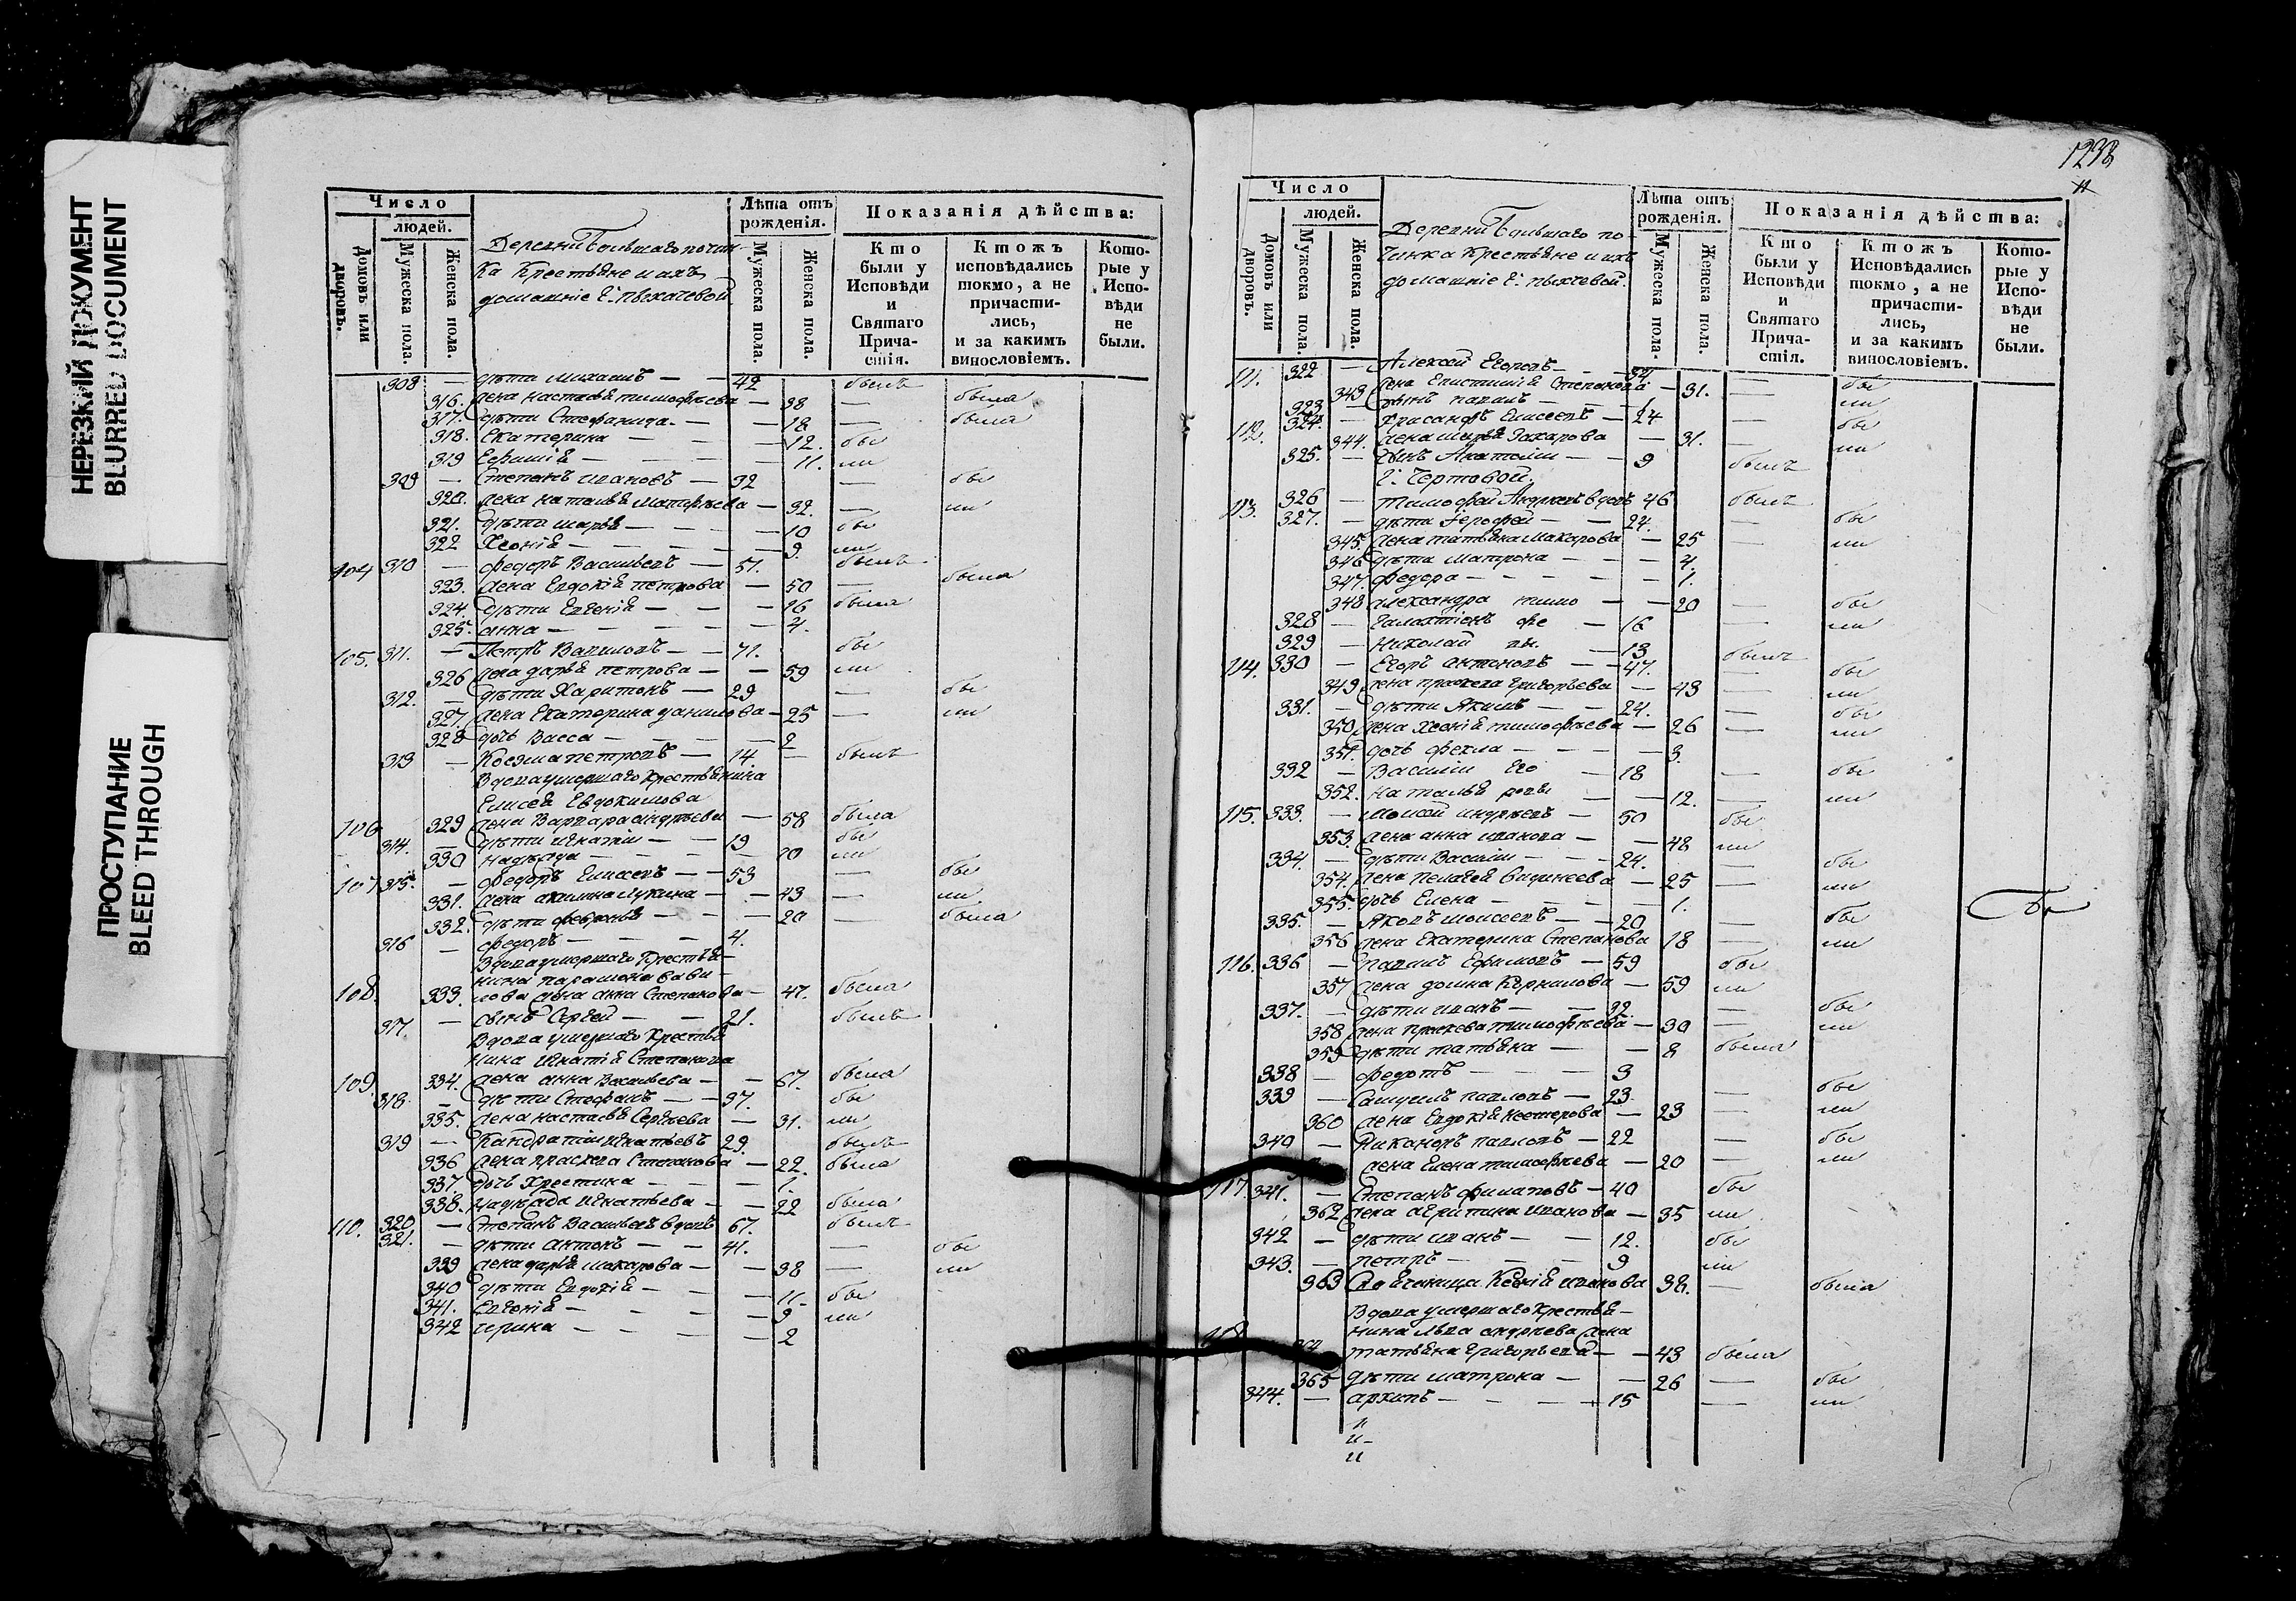 НЕРЕЗКИЙ ДОКУМЕНТ
BLURRED DOCUMENT
ПРОСТУПАНИЕ
BLEED THROUGH
Число
людей.
Домовъ или дворовъ.
Мужеска пола.
Женска пола.
Деревни Большаго почин-
ка Крестьяне и ихъ
домашніе Г:
Лѣта отъ рожденія.
Мужеска пола.
Женска пола.
Показанія дѣйства:
Кто были у Исповѣди и Святаго Прича- стія.
Ктожъ исповѣдались токмо, а не причасти- лись, и за какимъ винословіемъ.
Кото- рые у Испо- вѣди не были.
308 — дѣти Михаилъ — — 42 былъ
316. жена Настасья Тимофѣева — 38 — была
317. дѣти Стефанида — — 18 — была
318. Екатерина — — — 12. бы
319 — — — 11. ли
309 — Степанъ Ивановъ — 32 — бы
320. жена Наталья Матвѣева — 32. — ли
321. дѣти Марья — — — 10 бы
322 Хіонія — — — 9. ли
104 310 — Федоръ Васильевъ — 51. былъ
323. жена Евдокія Петрова — 50 — была
324. дѣти Евгенія — — — 16 была
325. Анна — — — — 4.
105. 311. — Петръ — — 71. бы
326 жена Дарья Петрова — — 59 ли
312. — дѣти Харитонъ — 29 — бы
327. жена Екатерина Данилова — 25 — ли
328 дочь Васса — — — 2
313 — Косьма Петровъ — 14 — былъ
Вдова умершаго Крестьянина
Елисея Евдокимова
106 329 жена Варвара Андреева — 58 была
314. — дѣти Игнатій — — 19 бы
330 Надежда — — — 20 ли
107 315. — Федоръ Елисеевъ — — 53 — бы
331. жена Акилина Лукина — — 43 — ли
332. дѣти Февронья — — — 20 — была
316 — Федоръ — — — 4.
Вдова умершаго Крестья-
нина Парамона Вави-
108. 333. лова жена Анна Степанова — 47. была
317. — сынъ Сергей — — 21. былъ
Вдова умершаго Крестья
нина Игнатія Степанова
109. 334. жена Анна Васильева — — 67. была
318. — дѣти Стефанъ — — 37. бы
335. жена Настасья Сергѣева — 31. ли
319 — Кондратій Игнатьевъ 29. былъ
336 жена Прасковья Степанова — 22. была
337 дочь Христина — — — 1.
338. Надежда Игнатьева — — 22 была
110. 320. — Степанъ Васильевъ вдовъ 67. былъ
321. — дѣти Антонъ — — 41. — бы
339 жена Дарья Макарова — — 38 — ли
340 дѣти Евдокія — — — 11. бы
341. Евгенія — — — 9 ли
342 Ирина — — — — 2
1238
Число
людей.
Домовъ или дворовъ.
Мужеска пола.
Женска пола.
Деревни Большаго по-
чинка Крестьяне и ихъ
домашніе Г:
Лѣта отъ рожденія.
Мужеска пола.
Женска пола.
Показанія дѣйства:
Кто были у Исповѣди и Святаго Прича- стія.
Ктожъ Исповѣдались токмо, а не причасти- лись, и за какимъ винословіемъ.
Кото- рые у Испо- вѣди не были.
111. 322 — Алексѣй Егоровъ — — 34 — бы
343 жена Епистимія Степанова — 31. — ли
323 — сынъ Павелъ — — 1.
112. 324. — Хрисанфъ Елисеевъ — 24 — бы
344. жена Марья Захарова — 31. — ли
325. — сынъ Анатолій — — 9 былъ
Г: Чертовой.
113. 326 — Тимофей Андреевъ вдовъ 46 былъ
327. — дѣти Іерофей — — 24. — бы
345. жена Татьяна Макарова — 25 — ли
346 дѣти Матрона — — — 4.
347. Федора — — — — 1.
348 Александра тимо — — 20 — бы
328 — Галактіонъ фе — 16 — ли
329 — Николай вы. — 13
114. 330 — Егоръ Антоновъ — — 47. былъ
349 жена Прасковья Григорьева — 43 — бы
331. — дѣти Якимъ — — 24. — ли
350 жена Хіонія Тимофѣева — 26 — бы
351. дочь Фекла — — — 3. ли
332 — Василій Его — 18 — бы
352. Наталья ровы — — 12. — ли
115. 333. — Моисей Андреевъ — 50 бы
353. жена Анна Иванова — — 48 ли
334. — дѣти Василій — — 24. — бы
354. жена Пелагея — 25 — ли
355. дочь Елена — — — 1.
335. — Яковъ Моисеевъ — — 20 — бы
356 жена Екатерина Степанова 18 — ли
116. 336 — Павелъ Ефимовъ — 59 бы
357 жена Домна Корнилова — 59 ли
337. — дѣти Иванъ — — 32 — бы
358 жена Прасковья Тимофѣева — 30 — ли
359 дѣти Татьяна — — 8 была
338 — Федотъ — — — 3
339 — Самуилъ Павловъ — 23. — бы
360 жена Евдокія Нестерова — 23 — ли
340 — Никаноръ Павловъ — 22 — бы
жена Елена Тимофѣева — 20 — ли
117 341. — Степанъ Филаповъ — 40 бы
362 жена Агрипина Иванова — 35 ли
342 — дѣти Иванъ — — 12. бы
343. — Петръ — — — 9 ли
363 Своячиница Ксенія Иванова 38. — была
Вдова умершаго Крестья-
нина Льва Андреева жена
118 Татьяна Григорьева — — 43 была
365 дѣти Матрона — — 26 — бы
344. — Архипъ — — — 15 — ли